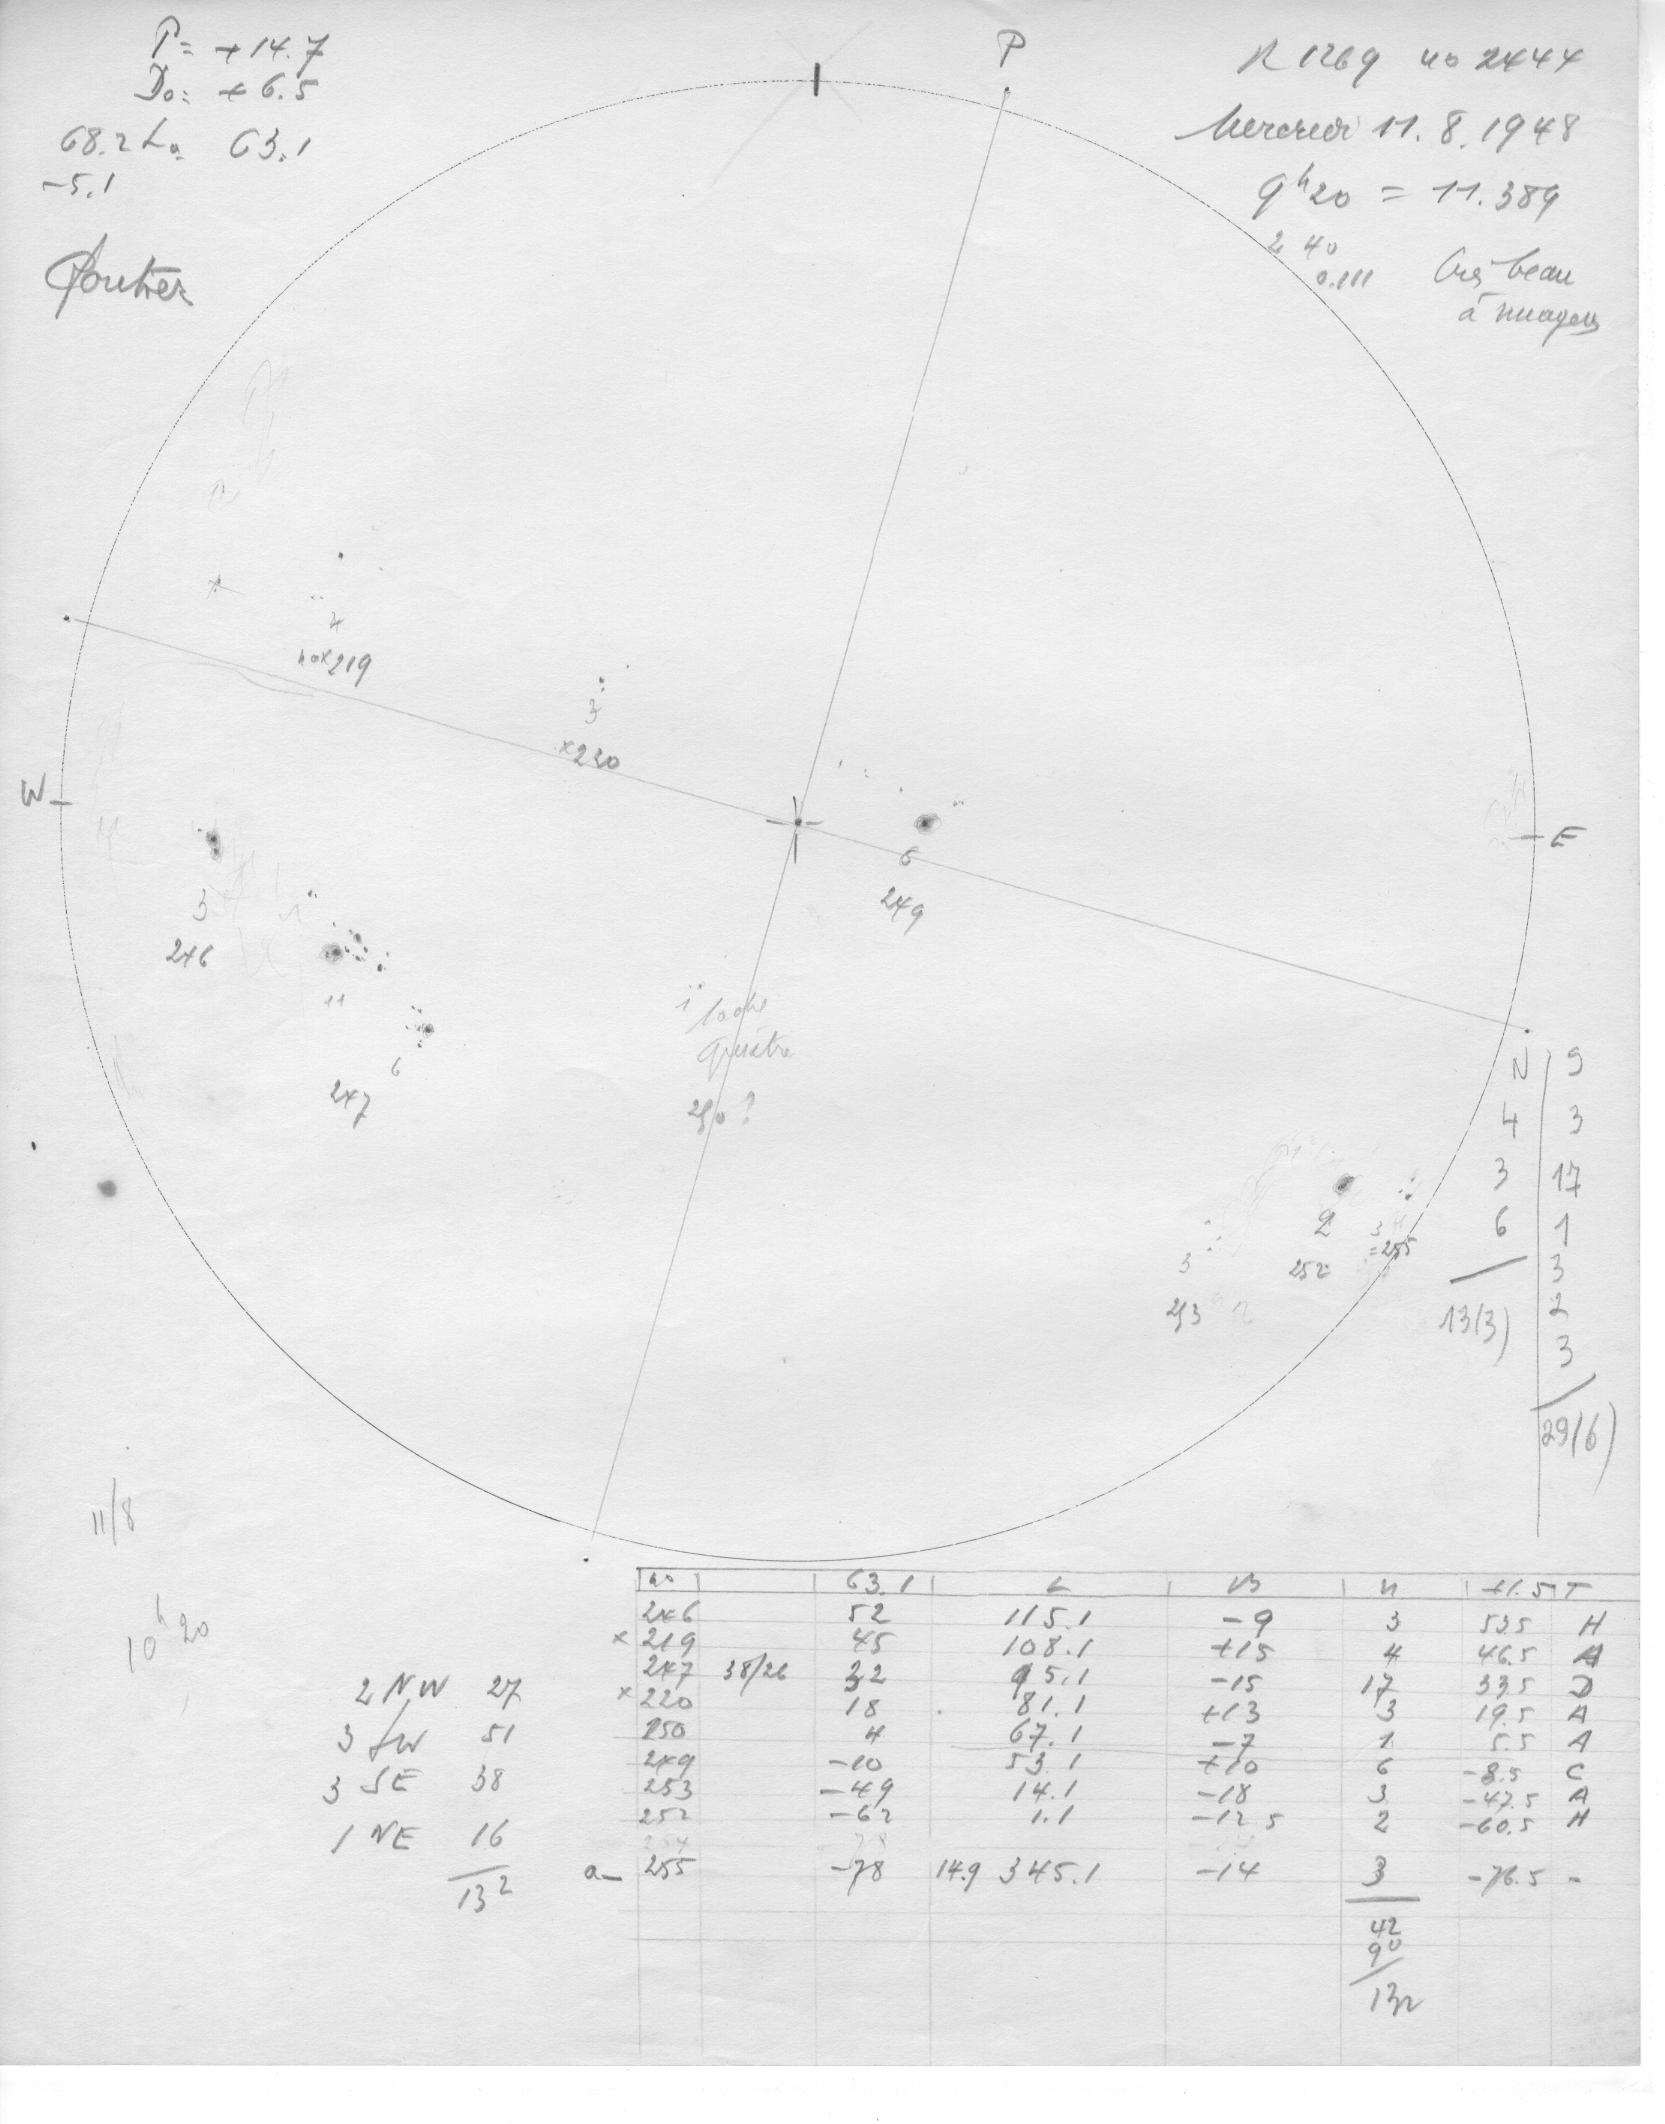 P = +14.7
D₀ = +6.5
68.2 L₀ = 63.1
-5.1
P
R 1269 no 2444
Mercredi 11.8.1948
9h20 = 11.389
2 40
0.111
Très beau
à nuageux
4
no x 219
3
x 220
W
E
6
249
3
246
11
6
247
1 tache
250 ?
2
252
3
= 255
3
253
N | S
4 | 3
3 | 17
6 | 1
3
13(3) | 2
3
29(6)
11/8
10h20
2 NW 27
3 SW 51
3 SE 38
1 NE 16
132
no 63.1 L B n +1.5 T
246 52 115.1 -9 3 53.5 H
x 219 45 108.1 +15 4 46.5 A
247 38/26 32 95.1 -15 17 33.5 D
x 220 18 81.1 +13 3 19.5 A
250 4 67.1 -7 1 5.5 A
249 -10 53.1 +10 6 -8.5 C
253 -49 14.1 -18 3 -47.5 A
252 -62 1.1 -12.5 2 -60.5 H
a- 255 -78 14.9 345.1 -14 3 -76.5 -
42
90
132